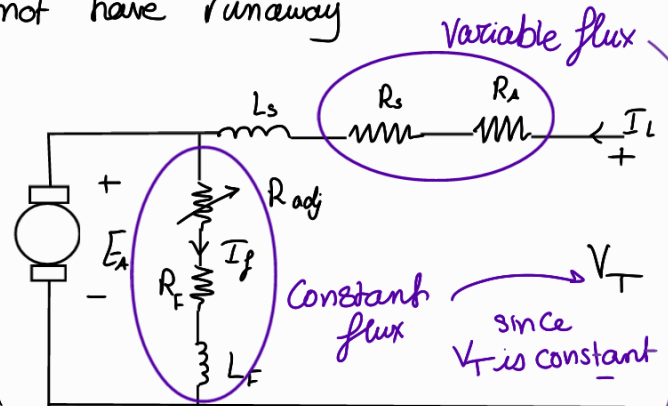 not have runaway
Variable flux
Ls
Rs
RA
IL
+
+
Radj
EA
If
RF
−
LF
Constant
flux
VT
since
VT is constant